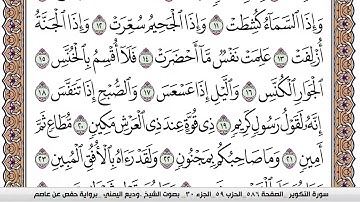 وَإِذَا ٱلسَّمَآءُ كُشِطَتْ ١١ وَإِذَا ٱلْجَحِيمُ سُعِّرَتْ ١٢ وَإِذَا ٱلْجَنَّةُ
أُزْلِفَتْ ١٣ عَلِمَتْ نَفْسٌ مَّآ أَحْضَرَتْ ١٤ فَلَآ أُقْسِمُ بِٱلْخُنَّسِ ١٥
ٱلْجَوَارِ ٱلْكُنَّسِ ١٦ وَٱلَّيْلِ إِذَا عَسْعَسَ ١٧ وَٱلصُّبْحِ إِذَا تَنَفَّسَ ١٨
إِنَّهُۥ لَقَوْلُ رَسُولٍ كَرِيمٍ ١٩ ذِى قُوَّةٍ عِندَ ذِى ٱلْعَرْشِ مَكِينٍ ٢٠ مُّطَاعٍ ثَمَّ
أَمِينٍ ٢١ وَمَا صَاحِبُكُم بِمَجْنُونٍ ٢٢ وَلَقَدْ رَءَاهُ بِٱلْأُفُقِ ٱلْمُبِينِ ٢٣
سورة التكوير . الصفحة ٥٨٦ . الحزب ٥٩ . الجزء ٣٠ . بصوت الشيخ . وديع اليمني . برواية حفص عن عاصم